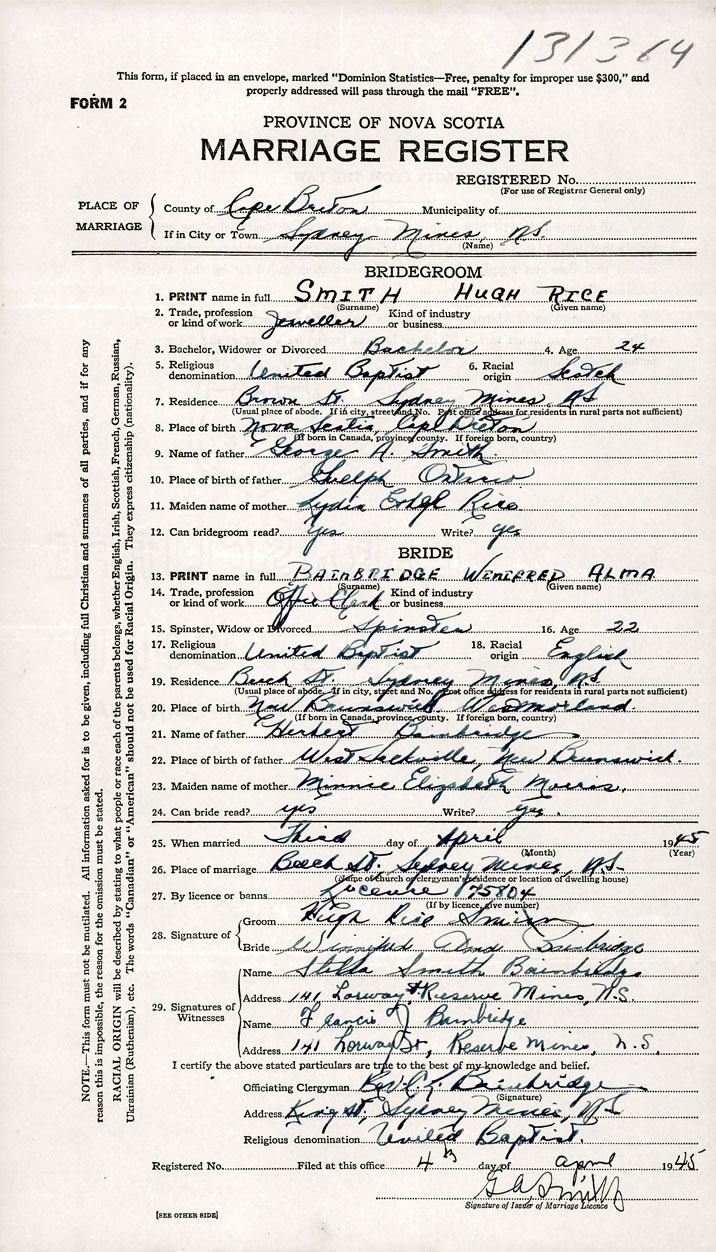 131364
This form, if placed in an envelope, marked "Dominion Statistics—Free, penalty for improper use $300," and
properly addressed will pass through the mail "FREE".
FORM 2
PROVINCE OF NOVA SCOTIA
MARRIAGE REGISTER
REGISTERED No.
(For use of Registrar General only)
PLACE OF MARRIAGE
County of Cape Breton Municipality of
If in City or Town Sydney Mines, NS.
(Name)
BRIDEGROOM
1. PRINT name in full SMITH HUGH RICE
(Surname) (Given name)
2. Trade, profession or kind of work Jeweller Kind of industry or business
3. Bachelor, Widower or Divorced Bachelor 4. Age 24
5. Religious denomination United Baptist 6. Racial origin Scotch
7. Residence Brown St. Sydney Mines, NS
(Usual place of abode. If in city, street and No. Post office address for residents in rural parts not sufficient)
8. Place of birth Nova Scotia, Cape Breton
(If born in Canada, province, county. If foreign born, country)
9. Name of father George A. Smith.
10. Place of birth of father Guelph Ontario
11. Maiden name of mother Lydia Ethel Rice
12. Can bridegroom read? Yes Write? yes
BRIDE
13. PRINT name in full BAINBRIDGE WINIFRED ALMA
(Surname) (Given name)
14. Trade, profession or kind of work Office Clerk Kind of industry or business
15. Spinster, Widow or Divorced Spinster 16. Age 22
17. Religious denomination United Baptist 18. Racial origin English
19. Residence Beech St. Sydney Mines, NS
(Usual place of abode. If in city, street and No. Post office address for residents in rural parts not sufficient)
20. Place of birth New Brunswick Westmorland.
(If born in Canada, province, county. If foreign born, country)
21. Name of father Herbert Bainbridge
22. Place of birth of father West Sackville, New Brunswick.
23. Maiden name of mother Minnie Elizabeth Morris.
24. Can bride read? yes Write? yes.
25. When married Third day of April 1945
(Month) (Year)
26. Place of marriage Beech St. Sydney Mines, NS.
(Name of church or clergyman's residence or location of dwelling house)
27. By licence or banns Licence 75804
(If by licence, give number)
28. Signature of
Groom Hugh Rice Smith
Bride Winnifred Alma Bainbridge
29. Signatures of Witnesses
Name Stella Smith Bainbridge
Address 141 Lorway St Reserve Mines, N.S.
Name Francis J Bainbridge
Address 141 Lorway St, Reserve Mines, N.S.
I certify the above stated particulars are true to the best of my knowledge and belief.
Officiating Clergyman Rev. Bainbridge
(Signature)
Address King St, Sydney Mines, NS
Religious denomination United Baptist.
Registered No. Filed at this office 4th day of April 1945
G A Smith
Signature of Issuer of Marriage Licence
[SEE OTHER SIDE]
NOTE.—This form must not be mutilated. All information asked for is to be given, including full Christian and surnames of all parties, and if for any
reason this is impossible, the reason for the omission must be stated.
RACIAL ORIGIN will be described by stating to what people or race each of the parents belongs, whether English, Irish, Scottish, French, German, Russian,
Ukrainian (Ruthenian), etc. The words "Canadian" or "American" should not be used for Racial Origin. They express citizenship (nationality).